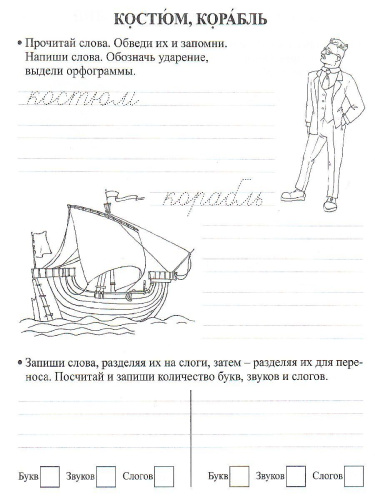 КОСТЮ́М, КОРА́БЛЬ
• Прочитай слова. Обведи их и запомни.
Напиши слова. Обозначь ударение,
выдели орфограммы.
костюм
корабль
• Запиши слова, разделяя их на слоги, затем – разделяя их для пере-
носа. Посчитай и запиши количество букв, звуков и слогов.
Букв Звуков Слогов Букв Звуков Слогов